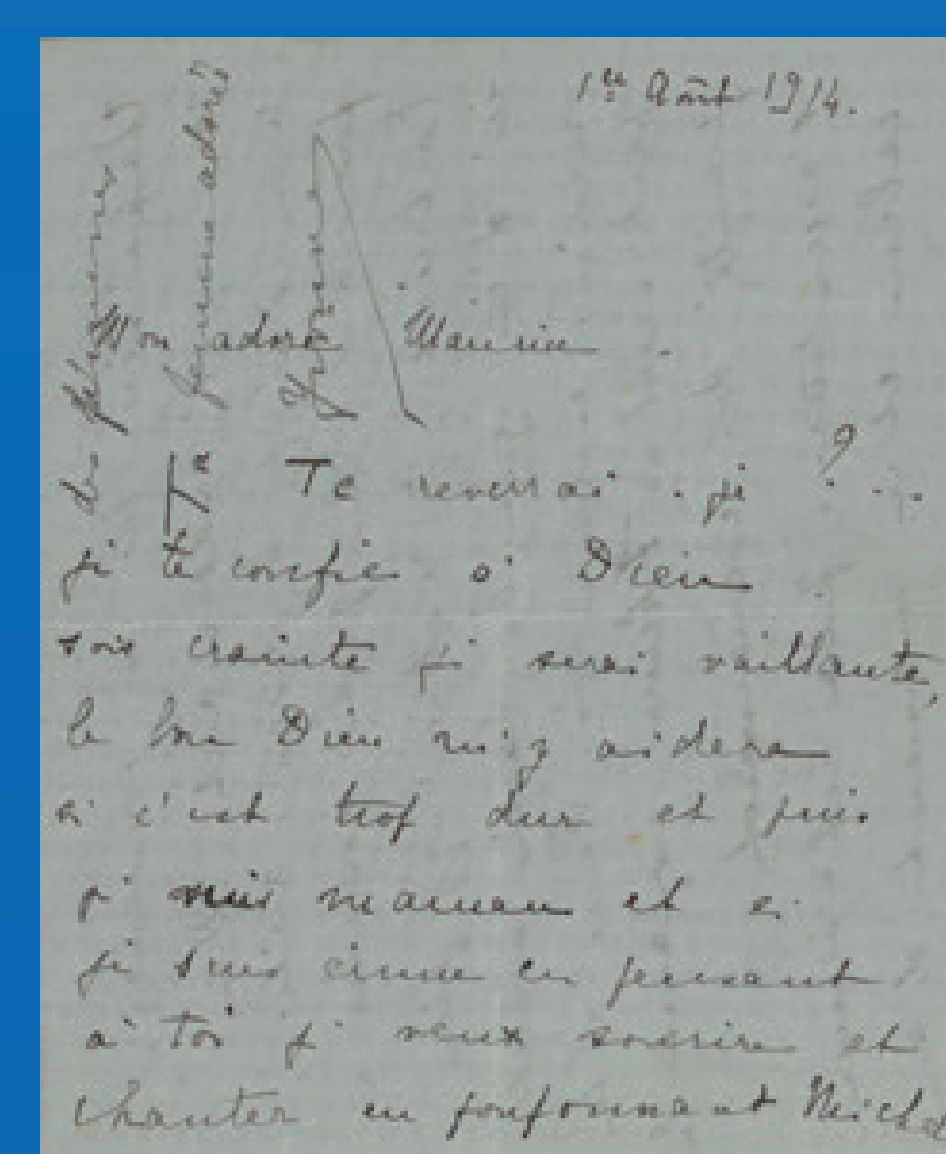 1er Août 1914.
Mon adoré Maurice.
Te reverrai-je ? ...
je te confie à Dieu.
sois crainte je serai vaillante,
le bon Dieu m'y aidera
si c'est trop dur et puis
je suis maman et si
je suis émue en pensant
à toi je veux sourire et
chanter en pouponnant Michel
des
femme adorée